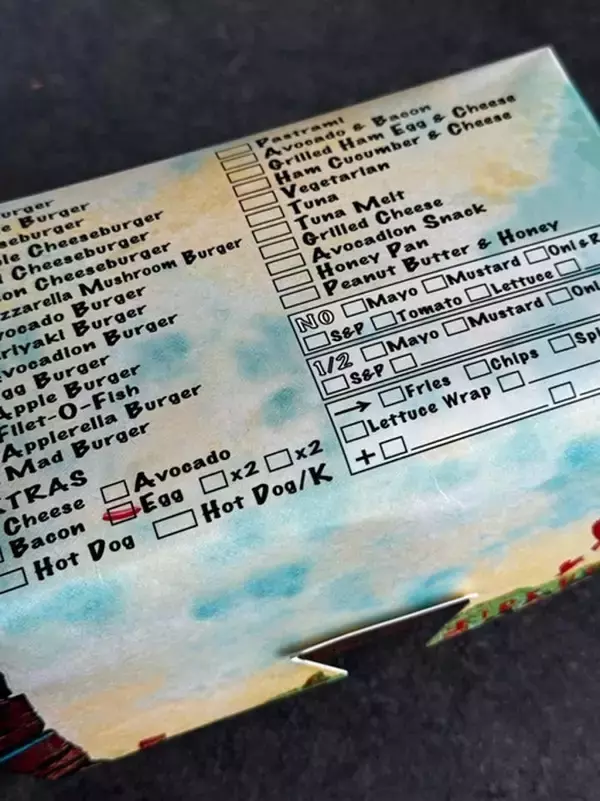 urger
e Burger
eseburger
ble Cheeseburger
Cheeseburger
on Cheeseburger
zzarella Mushroom Burger
vocado Burger
eriyaki Burger
vocadion Burger
gg Burger
Apple Burger
Filet-O-Fish
Applerella Burger
Mad Burger
XTRAS
Cheese Avocado
Bacon Egg x2 x2
Hot Dog Hot Dog/K
Pastrami
Avocado & Bacon
Grilled Ham Egg & Cheese
Ham Cucumber & Cheese
Vegetarian
Tuna
Tuna Melt
Grilled Cheese
Avocadion Snack
Honey Pan
Peanut Butter & Honey
NO Mayo Mustard Oni & R
S&P Tomato Lettuce
1/2 Mayo Mustard Oni
S&P
→ Fries Chips Spi
Lettuce Wrap
+